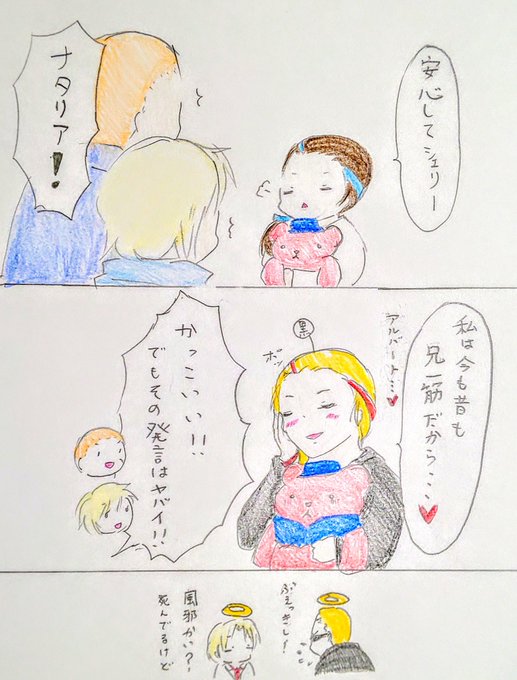 安心してシェリー
ナタリア!
私は今も昔も
兄一筋だから…♥
アルバート…♥
黒
ポッ
かっこいい!!
でもその発言はヤバイ!!
ぶぇっきし!
風邪かい?
死んでるけど